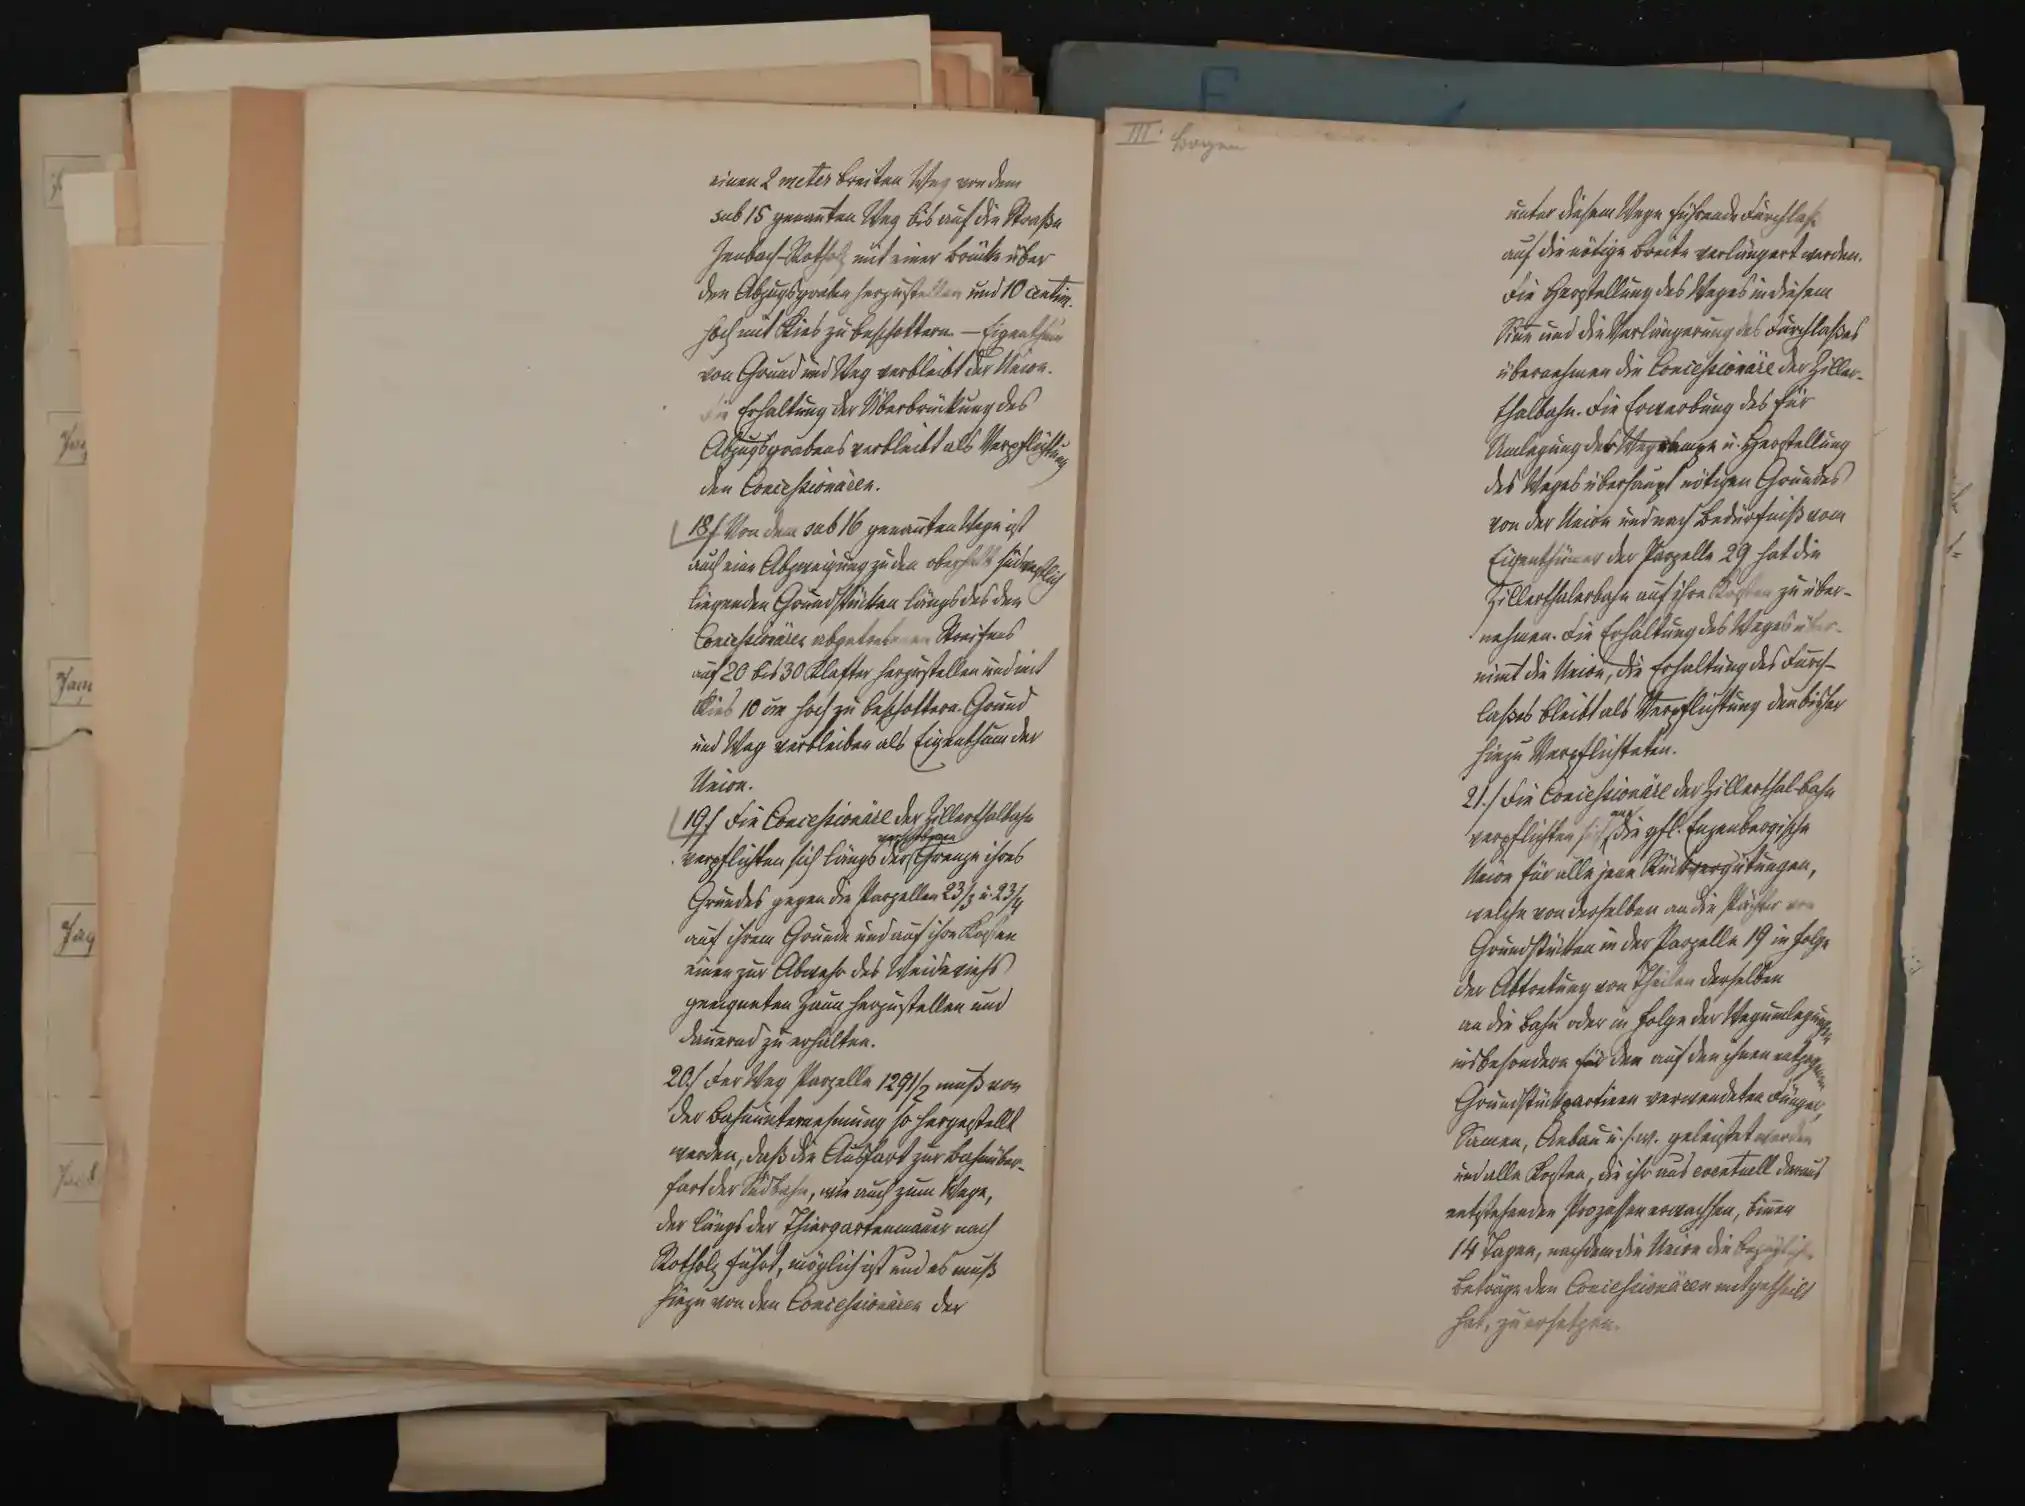 einen 2 meter breiten Weg von dem
sub 15 genannten Weg bis auf die Straße
Jenbach-Rotholz mit einer Brücke über
den Abzugsgraben herzustellen und 10 centim.
hoch mit Kies zu beschottern. — Eigenthum
von Grund und Weg verbleibt der Union.
Die Erhaltung der Überbrückung des
Abzugsgrabens verbleibt als Verpflichtung
den Concessionären.
18./ Von dem sub 16 genannten Wege ist
auch eine Abzweigung zu den oberhalb südwestlich
liegenden Grundstücken längs des den
Concessionären abgetretenen Streifens
auf 20 bis 30 Klafter herzustellen und mit
Kies 10 cm hoch zu beschottern. Grund
und Weg verbleiben als Eigenthum der
Union.
19./ Die Concessionäre der Zillerthalbahn
verpflichten sich längs der Grenze ihres
Grundes gegen die Parzellen 23/3 u. 23/4
auf ihrem Grunde und auf ihre Kosten
einen zur Abwehr des Weideviehs
geeigneten Zaun herzustellen und
dauernd zu erhalten.
20./ Der Weg Parzelle 1291/2 muß von
der Bahnunternehmung so hergestellt
werden, daß die Ausfart zur Bahnüber-
fart der Südbahn, wie auch zum Wege,
der längs der Thiergartenmauer nach
Rotholz führt, möglich ist und es muß
hiezu von den Concessionären der
III. Bogen
unter diesem Wege führende Durchlaß
auf die nötige Breite verlängert werden.
Die Herstellung des Weges in diesem
Sinne und die Verlängerung des Durchlaßes
übernehmen die Concessionäre der Ziller-
thalbahn. Die Erwerbung des für
Umlegung der Wegrampe u. Herstellung
des Weges überhaupt nötigen Grundes
von der Union und nach Bedürfniß vom
Eigenthümer der Parzelle 29 hat die
Zillerthalerbahn auf ihre Kosten zu über-
nehmen. Die Erhaltung des Weges über-
nimt die Union, die Erhaltung des Durch-
laßes bleibt als Verpflichtung den bisher
hiezu Verpflichteten.
21./ Die Concessionäre der Zillerthal-bahn
verpflichten sich auch die gfl. Enzenbergische
Union für alle jene Rückvergütungen,
welche von derselben an die Pächter von
Grundstücken in der Parzelle 19 in Folge
der Abtretung von Theilen derselben
an die Bahn oder in Folge der Wegumlegungen
insbesondere für den auf den ihnen entzogenen
Grundstückpartieen verwendeten Dünger,
Samen, Anbau u.s.w. geleistet werden
und alle Kosten, die ihr aus eventuell daraus
entstehenden Prozessen erwachsen, binnen
14 Tagen, nachdem die Union die bezüglichen
Beträge den Concessionären mitgetheilt
hat, zu ersetzen.